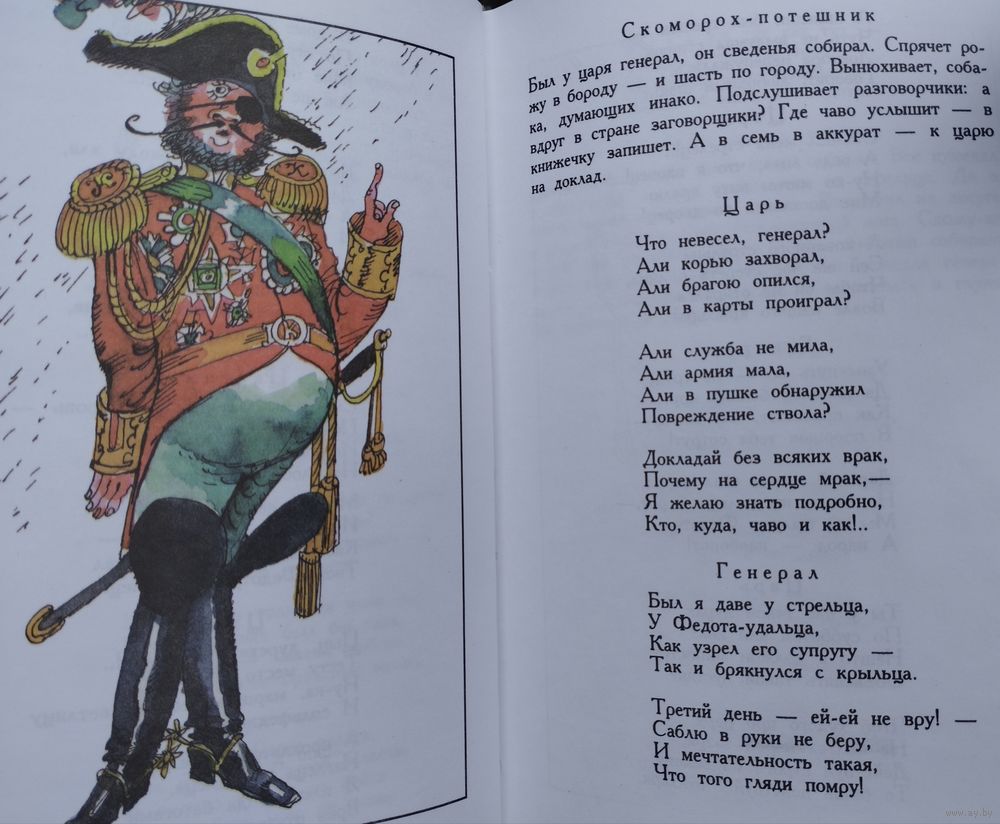 Скоморох-потешник
Был у царя генерал, он сведенья собирал. Спрячет ро-
жу в бороду — и шасть по городу. Вынюхивает, соба-
ка, думающих инако. Подслушивает разговорчики: а
вдруг в стране заговорщики? Где чаво услышит — в
книжечку запишет. А в семь в аккурат — к царю
на доклад.
Царь
Что невесел, генерал?
Али корью захворал,
Али брагою опился,
Али в карты проиграл?
Али служба не мила,
Али армия мала,
Али в пушке обнаружил
Повреждение ствола?
Докладай без всяких врак,
Почему на сердце мрак,—
Я желаю знать подробно,
Кто, куда, чаво и как!..
Генерал
Был я даве у стрельца,
У Федота-удальца,
Как узрел его супругу —
Так и брякнулся с крыльца.
Третий день — ей-ей не вру! —
Саблю в руки не беру,
И мечтательность такая,
Что того гляди помру!
www.ay.by